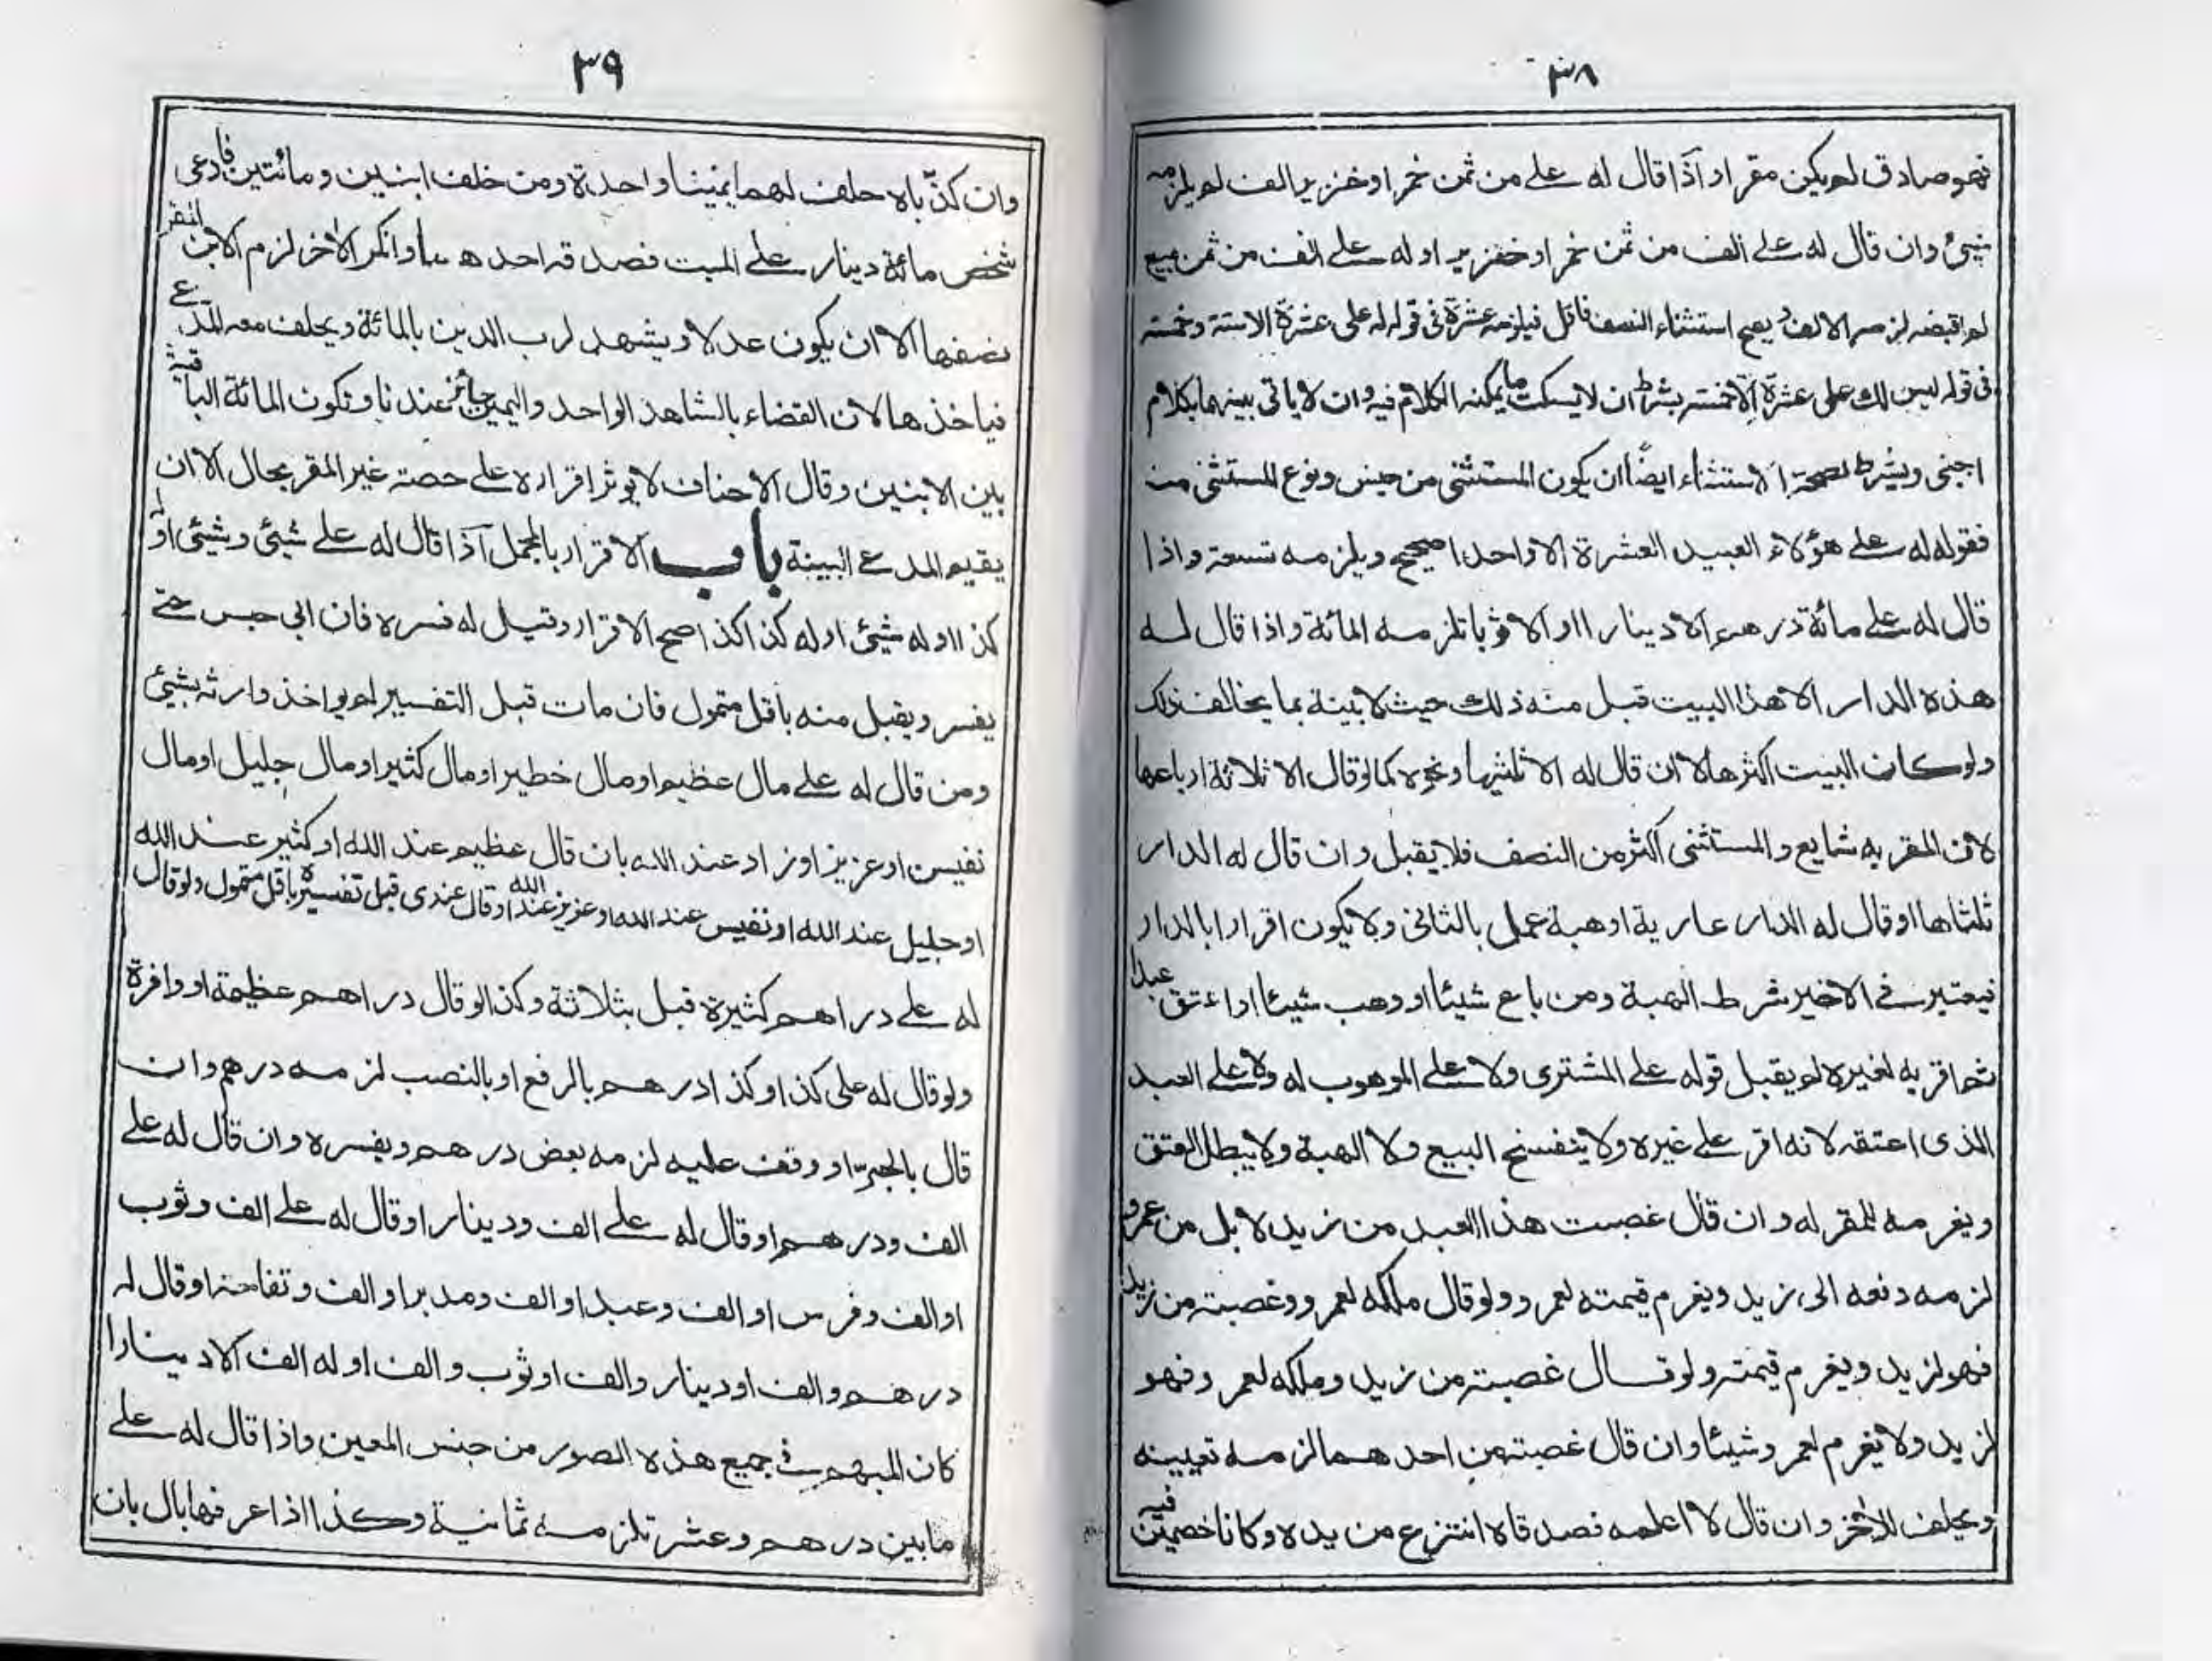 ٣٨
فهو صادق لم يكن مقرا واذا قال له على من ثمن خمر او خنزير الف لم يلزمه
شيئ وان قال له على الف من ثمن خمر او خنزير او له على الف من ثمن مبيع
لم اقبضه لزمه الالف ويصح استثناء النصف فاقل فيلزمه عشرة فى قوله له على عشرة الاستة وخمسة
فى قوله ليس لك على عشرة الاخمسة بشرط ان لايسكت ما يمكنه الكلام فيه وان لاياتى بينهما بكلام
اجنبى ويشرط لصحة الاستثناء ايضًا ان يكون المستثنى من جنس ونوع المستثنى منه
فقوله له على هؤلاء العبيد العشرة الا واحدا صحيح ويلزمه تسعة واذا
قال له على مائة درهم الا دينارا او الا ثوبا تلزمه المائة واذا قال له
هذه الدار الا هذا البيت قبل منه ذلك حيث لا بينة بما يخالف ذلك
ولو كان البيت اكثرها لا ان قال له الا ثلثيها ونحوه كما لو قال الا ثلاثة ارباعها
لان المقر به شايع والمستثنى اكثر من النصف فلا يقبل وان قال له الدار
ثلثاها او قال له الدار عارية او هبة عمل بالثانى ولا يكون اقرارا بالدار
فيعتبر فى الاخير شرط الهبة ومن باع شيئا او وهب شيئا او اعتق عبدا
ثم اقر به لغيره لم يقبل قوله على المشترى ولا على الموهوب له ولا على العبد
الذى اعتقه لانه اقر على غيره ولا ينفسخ البيع ولا الهبة ولا يبطل العتق
ويغرمه للمقر له وان قال غصبت هذا العبد من زيد لا بل من عمرو
لزمه دفعه الى زيد ويغرم قيمته لعمرو ولو قال ملكه لعمرو وغصبته من زيد
فهو لزيد ويغرم قيمته ولو قال غصبته من زيد وملكه لعمرو فهو
لزيد ولا يغرم لعمرو شيئا وان قال غصبته من احدهما لزمه تعيينه
ويحلف للاخر وان قال لا اعلمه فصدقاه انتزع من يده وكانا خصمين فيه
٣٩
وان كذّباه حلف لهما يمينا واحدة ومن خلف ابنين ومائتين فادعى
شخص مائة دينار على الميت فصدقه احدهما وانكر الاخر لزم الابن المقر
نصفها الا ان يكون عدلا ويشهد لرب الدين بالمائة ويحلف معه المدعى
فياخذها لان القضاء بالشاهد الواحد واليمين جائز عندنا وتكون المائة الباقية
بين الابنين وقال الاحناف لا يوثر اقراره على حصة غير المقر بحال الا ان
يقيم المدعى البينة باب الاقرار بالمجمل اذا قال له على شيئ وشيئ او له
كذا او له شيئ او له كذا كذا صح الاقرار وقيل له فسره فان ابى حبس حتى
يفسر ويقبل منه باقل متمول فان مات قبل التفسير لم يواخذ وارثه بشيئ
ومن قال له على مال عظيم او مال خطير او مال كثير او مال جليل او مال
نفيس او عزيز او زاد عند الله بان قال عظيم عند الله او كثير عند الله
او جليل عند الله او نفيس عند الله او عزيز عند الله او قال عندى قبل تفسيره باقل متمول ولو قال
له على دراهم كثيرة قبل بثلاثة وكذا لو قال دراهم عظيمة او وافرة
ولو قال له على كذا وكذا درهم بالرفع او بالنصب لزمه درهم وان
قال بالجر او وقف عليه لزمه بعض درهم ويفسره وان قال له على
الف ودرهم او قال له على الف ودينار او قال له على الف وثوب
او الف وفرس او الف وعبد او الف ومدبر او الف وتفاحة او قال له
درهم والف او دينار والف او ثوب والف او له الف الا دينارا
كان المبهم فى جميع هذه الصور من جنس المعين واذا قال له على
ما بين درهم وعشر تلزمه ثمانية وكذا اذا عرفها بال بان